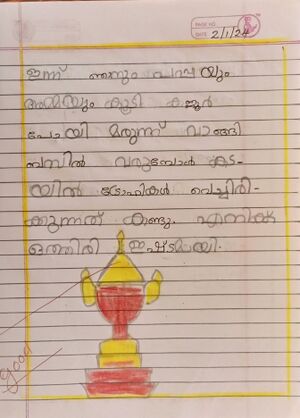 PAGE NO.
DATE 2/1/24
ഇന്ന് ഞാനും പപ്പയും
അമ്മയും കൂടി
പോയി മരുന്ന് വാങ്ങി
ബസിൽ വരുമ്പോൾ കട-
യിൽ ട്രോഫികൾ വെച്ചിരി-
ക്കുന്നത് കണ്ടു. എനിക്ക്
ഒത്തിരി ഇഷ്ടമായി.
good